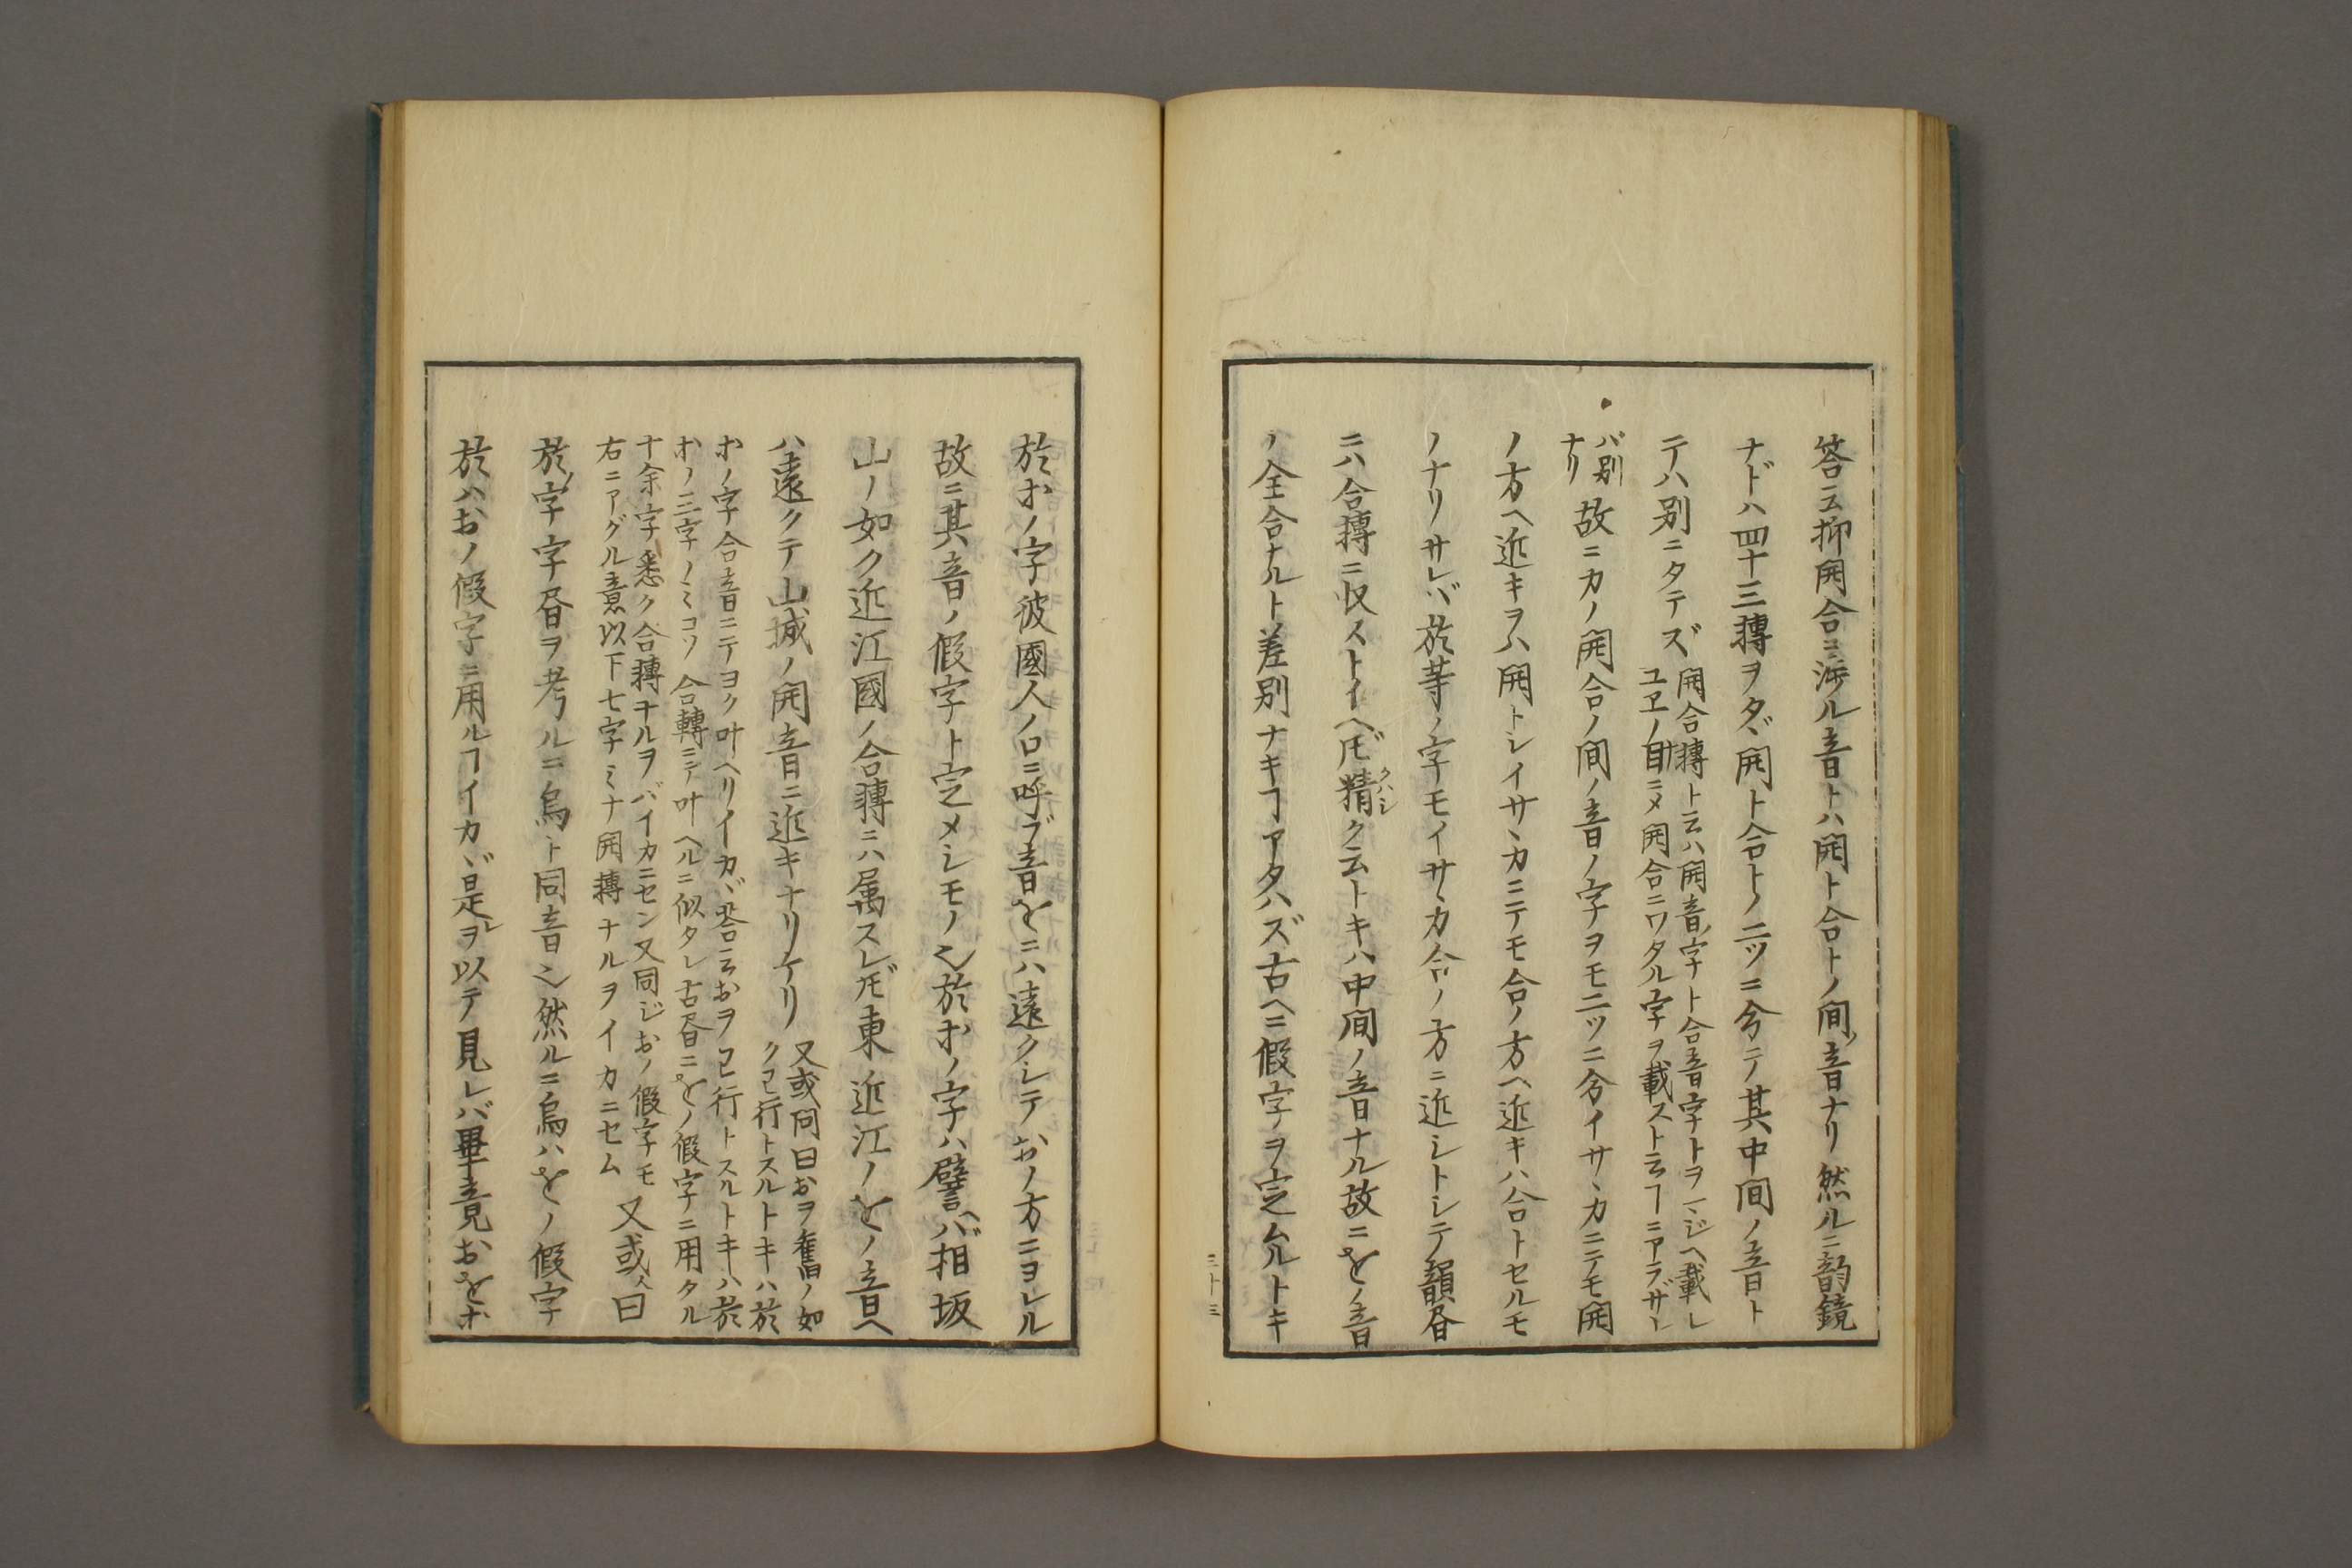 答云抑開合ニ渉ル音トハ開ト合トノ間ノ音ナリ然ルニ韵鏡
ナドハ四十三轉ヲタヾ開ト合トノ二ツニ分テ其中間ノ音ト
テハ別ニタテズ
開合轉ト云ハ開音ノ字ト合音ノ字トヲマジヘ載レ
ユヱノ目ニメ開合ニワタル字ヲ載ストヿニアラザレ
バ別
ナリ
故ニカノ開合ノ間ノ音ノ字ヲモ二ツニ分イサヽカニテモ開
ノ方ヘ近キヲハ開トシイサヽカニテモ合ノ方ヘ近キハ合トセルモ
ノナリサレバ於等ノ字モイサヽカ合ノ方ニ近シトシテ韻昝
ニハ合轉ニ収ストイヘ𪜈精ク云トキハ中間ノ音ナル故ニをノ音
クハシ
ノ全合ナルト差別ナキヿアタハズ古ヘニ假字ヲ定ムルトキ
三十三
於オノ字彼國人ノ口ニ呼ブ音をニハ遠クシテおノ方ニヨレル
故ニ其音ノ假字ト定メシモノ也於オノ字ハ譬ヘバ相坂
山ノ如ク近江國ノ合轉ニハ属スレ𪜈東近江ノをノ音ヘ
ハ遠クテ山城ノ開音ニ近キナリケリ
又或問曰おヲ舊ノ如
クワ行トスルトキハ於
オノ字合音ニテヨク叶ヘリイカヾ答云おヲワ行トスルトキハ於
オノ三字ノミコソ合轉ニテ叶ヘルニ似タレ古昝ニをノ假字ニ用タル
十余字悉ク合轉ナルヲバイカニセン又同ジおノ假字モ
右ニアグル意以下七字ミナ開轉ナルヲイカニセム
又或人曰
於ノ字字昝ヲ考ルニ烏ト同音也然ルニ烏ハをノ假字
於ハおノ假字ニ用ルヿイカヾ是レヲ以テ見レバ畢竟おをオ